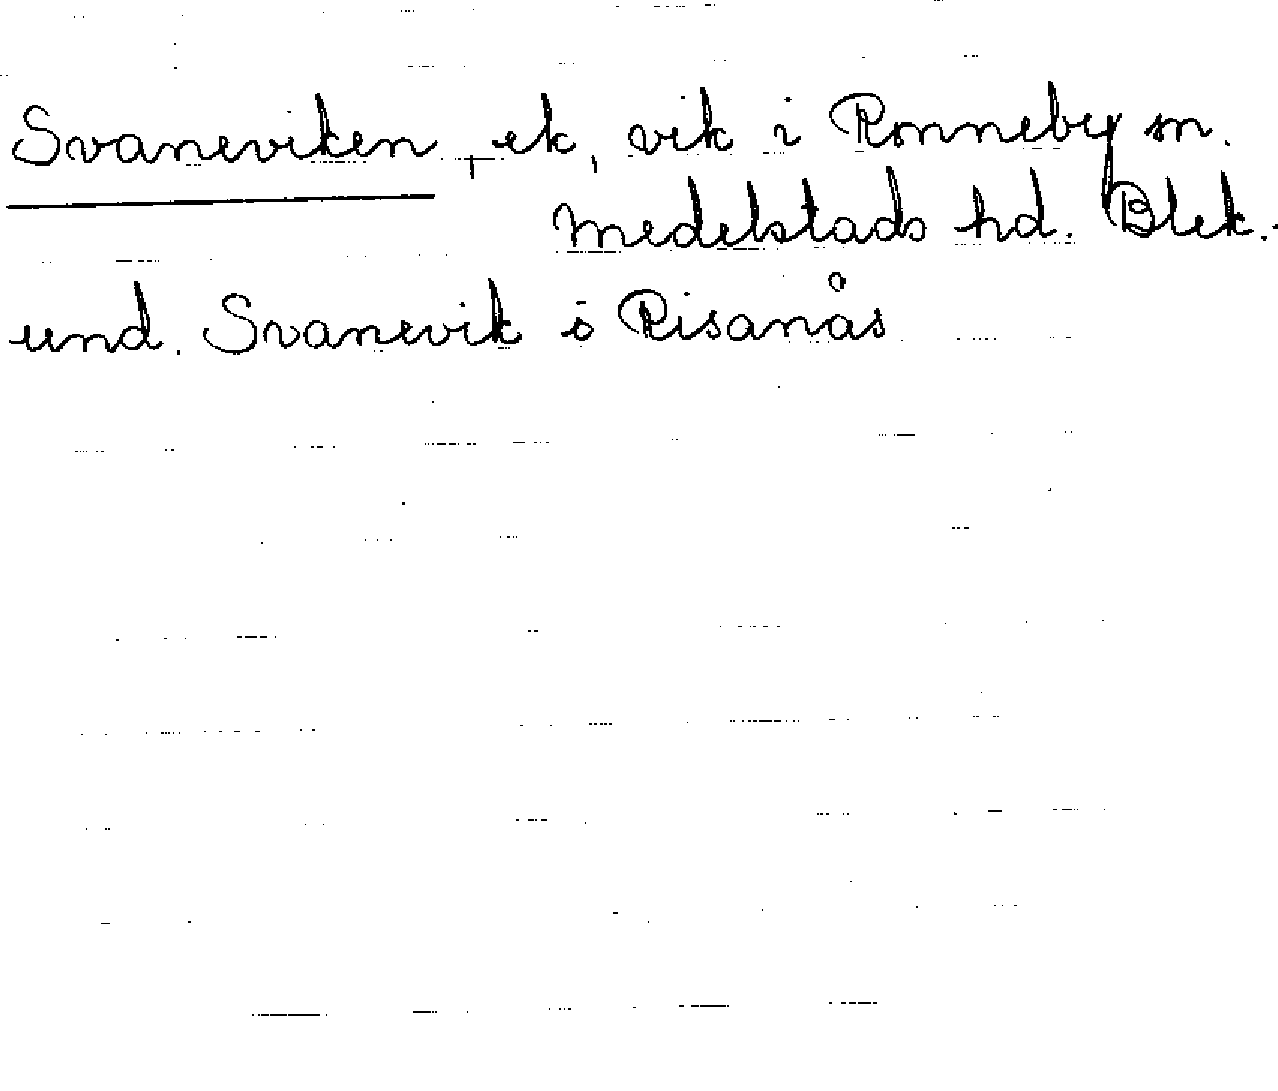 Svaneviken, ek, vik i Ronneby sn.
Medelstads hd. Blek.
und. Svanevik i Risanäs